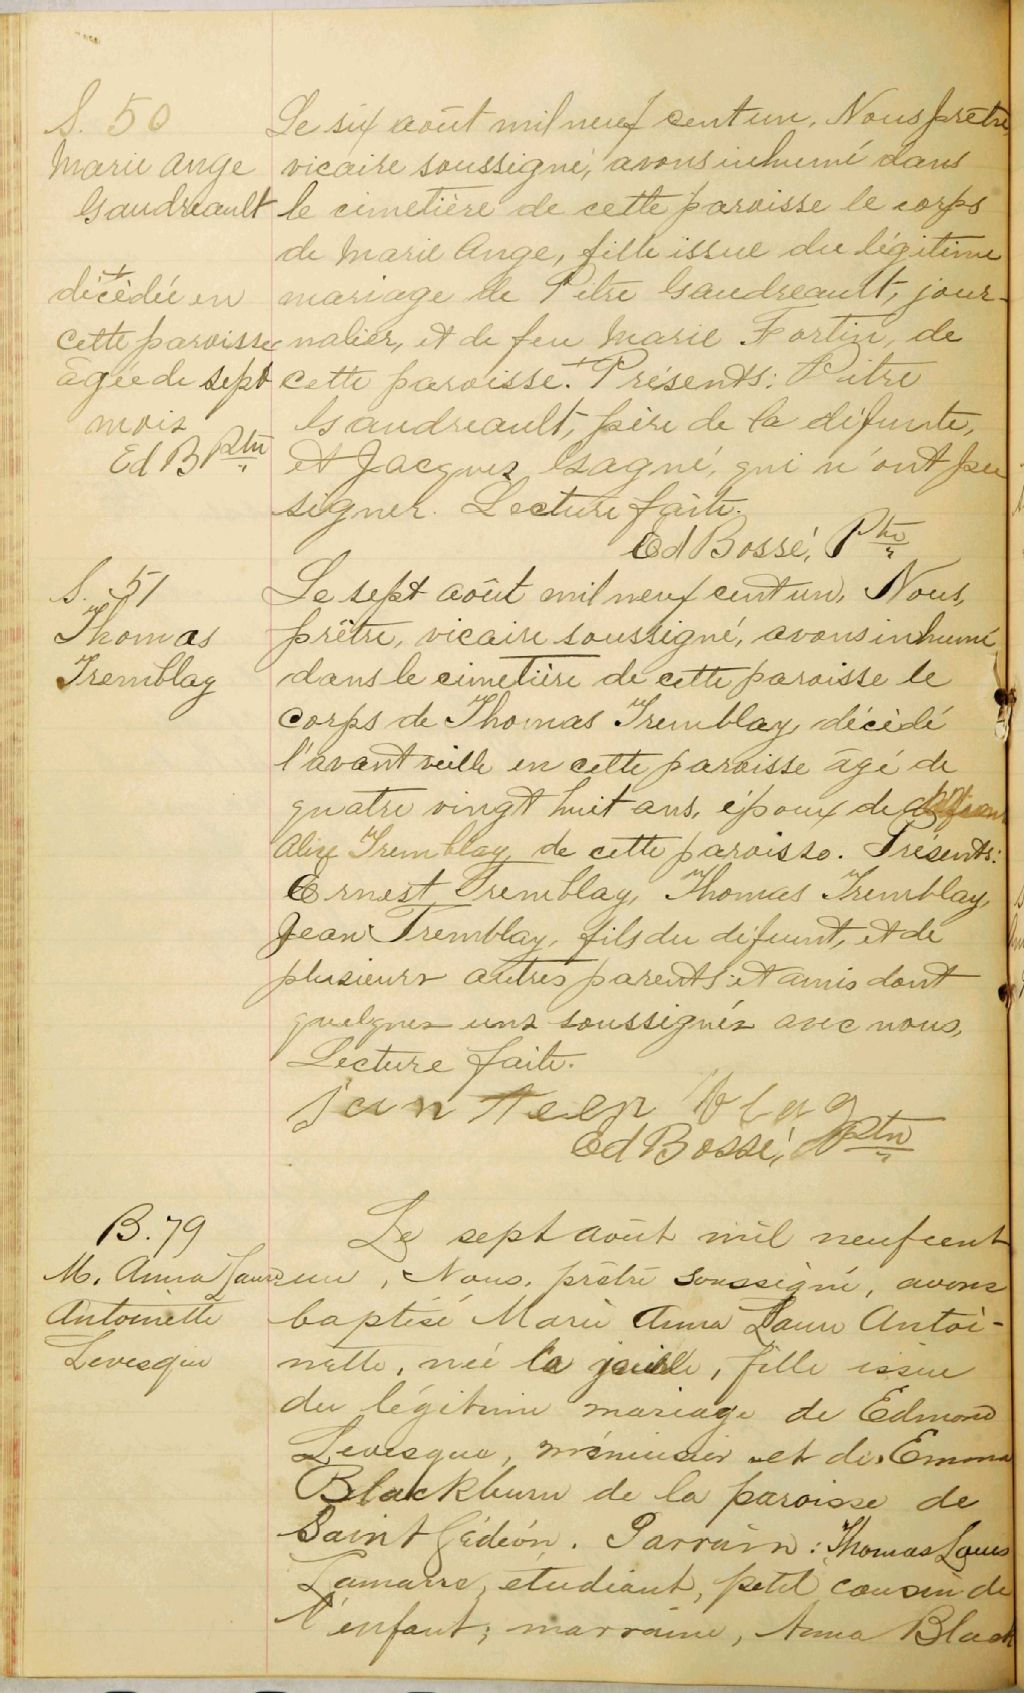 S. 50
Marie Ange
Gaudreault
+
décédée en
cette paroisse
âgée de sept
mois
Ed B Ptre
Le six août mil neuf cent un, Nous prêtre,
vicaire soussigné, avons inhumé dans
le cimetière de cette paroisse le corps
de Marie Ange, fille issue du légitime
mariage de Pitre Gaudreault, jour-
nalier, et de feu Marie Fortin, de
cette paroisse.+ Présents: Pitre
Gaudreault, père de la défunte,
et Jacques Gagné, qui n'ont pu
signer. Lecture faite.
Ed Bossé, Ptre
S. 51
Thomas
Tremblay
Le sept août mil neuf cent un, Nous,
prêtre, vicaire soussigné, avons inhumé
dans le cimetière de cette paroisse le
corps de Thomas Tremblay, décédé
l'avant veille en cette paroisse âgé de
quatre vingt huit ans, époux de
Alix Tremblay, de cette paroisse. Présents:
Ernest Tremblay, Thomas Tremblay,
Jean Tremblay, fils du défunt, et de
plusieurs autres parents et amis dont
quelques uns soussignés avec nous,
Lecture faite.
Ed Bossé, Ptre
B. 79
M. Anna Laure
Antoinette
Levesque
Le sept août mil neuf cent
un, Nous, prêtre soussigné, avons
baptisé Marie Anna Laure Antoi-
nette, née la veille, fille issue
du légitime mariage de Edmond
Levesque, menuisier et de Emma
Blackburn de la paroisse de
Saint Gédéon. Parrain: Thomas Louis
Lamarre, étudiant, petit cousin de
l'enfant; marraine, Anna Black